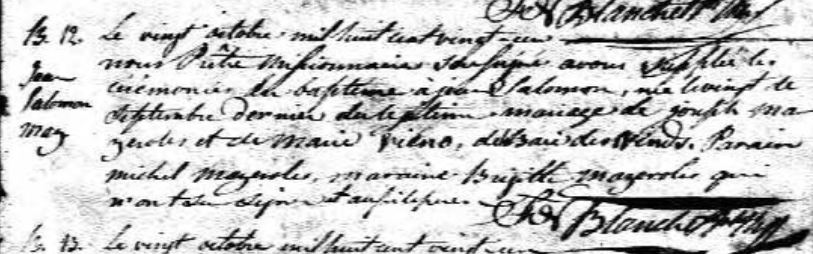 F. N. Blanchet Ptre
B. 12. Le vingt octobre mil huit cent vingt-un
Jean nous Prêtre Missionnaire Soussigné avons Supplée les
Salomon cérémonies du baptême à jean Salomon, née le vingt de
Maz Septembre dernier du légitime mariage de joseph Ma
zeroles et de Marie Vieno, de Baie des Winds. Parain
michel Mazeroles, maraine Brigitte Mazeroles qui
n'ont su signer
F. N. Blanchet
B. 13. Le vingt octobre mil huit cent vingt-un